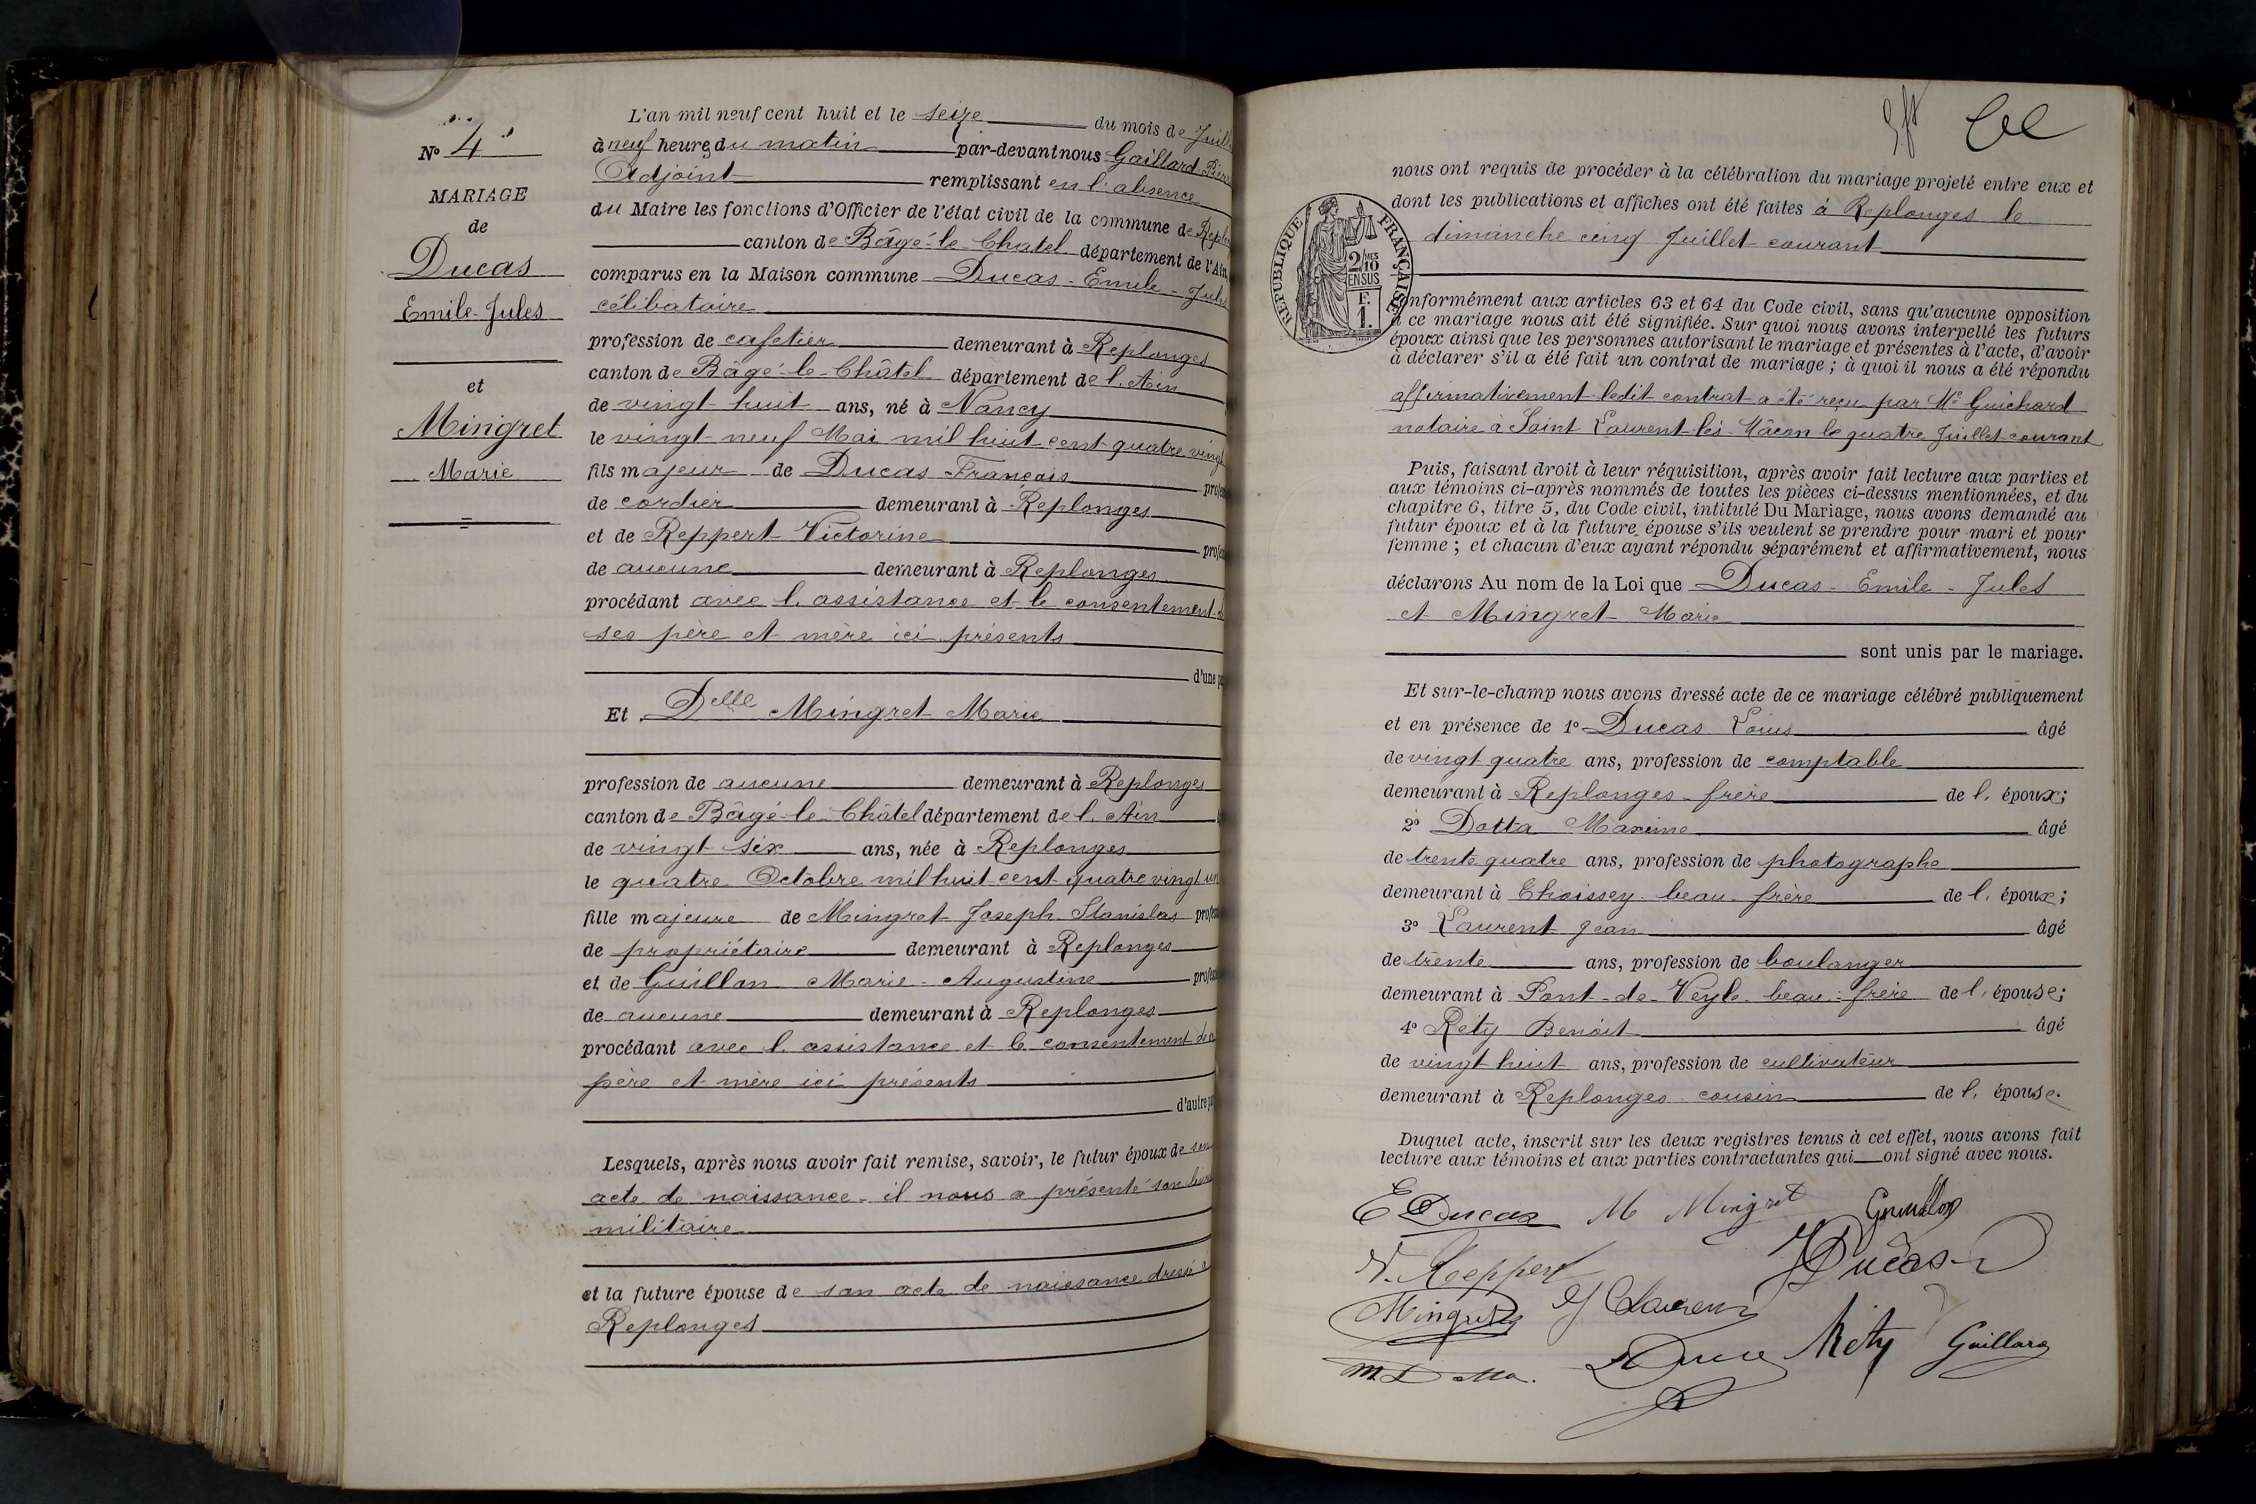 N° 4
MARIAGE
de
Ducas
Emile-Jules
et
Mingret
Marie
L'an mil neuf cent huit et le seize du mois de Juill
à neuf heures du matin par-devant nous Gaillard
Adjoint remplissant en l'absence
du Maire les fonctions d'Officier de l'état civil de la commune de Replon
canton de Bâgé-le-Chatel département de l'Ain
comparus en la Maison commune Ducas-Emile-Jules
célibataire
profession de cafetier demeurant à Replonges
canton de Bâgé-le-Châtel département de l'Ain
de vingt huit ans, né à Nancy
le vingt-neuf Mai mil huit cent quatre vingt
fils majeur de Ducas François profes
de cordier demeurant à Replonges
et de Reppert Victorine profes
de aucune demeurant à Replonges
procédant avec l'assistance et le consentement de
ses père et mère ici présents
d'une pa
Et Delle Mingret Marie
profession de aucune demeurant à Replonges
canton de Bâgé-le-Châtel département de l'Ain
de vingt six ans, née à Replonges
le quatre Octobre mil huit cent quatre vingt un
fille majeure de Mingret Joseph Stanislas profes
de propriétaire demeurant à Replonges
et de Guillon Marie-Augustine profes
de aucune demeurant à Replonges
procédant avec l'assistance et le consentement de
père et mère ici présents
d'autre pa
Lesquels, après nous avoir fait remise, savoir, le futur époux de son
acte de naissance. il nous a présenté son livret
militaire
et la future épouse de son acte de naissance dressé à
Replonges
nous ont requis de procéder à la célébration du mariage projeté entre eux et
dont les publications et affiches ont été faites à Replonges le
dimanche cinq Juillet courant
RÉPUBLIQUE FRANÇAISE
2/10 MES
EN SUS
F.
1.
Conformément aux articles 63 et 64 du Code civil, sans qu'aucune opposition
à ce mariage nous ait été signifiée. Sur quoi nous avons interpellé les futurs
époux ainsi que les personnes autorisant le mariage et présentes à l'acte, d'avoir
à déclarer s'il a été fait un contrat de mariage ; à quoi il nous a été répondu
affirmativement ledit contrat a été reçu par Me Guichard
notaire à Saint Laurent-lès-Mâcon le quatre Juillet courant
Puis, faisant droit à leur réquisition, après avoir fait lecture aux parties et
aux témoins ci-après nommés de toutes les pièces ci-dessus mentionnées, et du
chapitre 6, titre 5, du Code civil, intitulé Du Mariage, nous avons demandé au
futur époux et à la future épouse s'ils veulent se prendre pour mari et pour
femme ; et chacun d'eux ayant répondu séparément et affirmativement, nous
déclarons Au nom de la Loi que Ducas-Emile-Jules
et Mingret-Marie
sont unis par le mariage.
Et sur-le-champ nous avons dressé acte de ce mariage célébré publiquement
et en présence de 1° Ducas Louis âgé
de vingt quatre ans, profession de comptable
demeurant à Replonges-frère de l'époux;
2° Dotta Maxime âgé
de trente quatre ans, profession de photographe
demeurant à Thoissey-beau-frère de l'époux;
3° Laurent Jean âgé
de trente ans, profession de boulanger
demeurant à Pont-de-Veyle-beau-frère de l'épouse;
4° Réty Benoit âgé
de vingt huit ans, profession de cultivateur
demeurant à Replonges cousin de l'épouse.
Duquel acte, inscrit sur les deux registres tenus à cet effet, nous avons fait
lecture aux témoins et aux parties contractantes qui ont signé avec nous.
E Ducas M Mingret Guillon
V. Reppert Ducas
Mingret J Laurent
M. Dotta Réty Gaillard